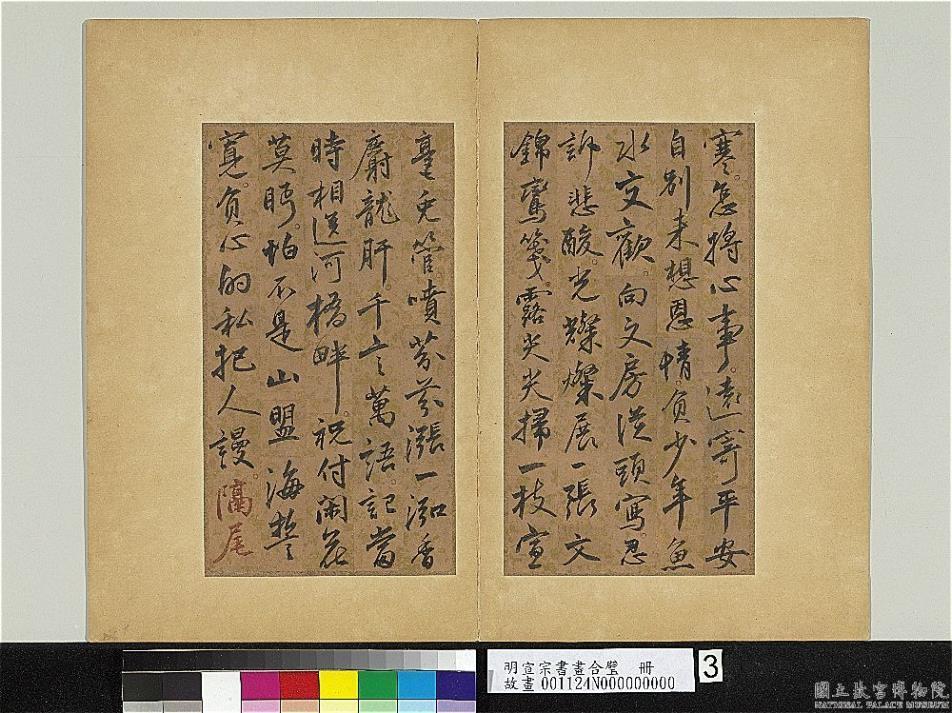 寒。怎將心事。遠寄平安
自別來想恩情。負少年魚
水文歡。向文房從頭寫。忍
訴悲酸。光燦燦展一張文
錦鸞箋。露尖尖掃一枝宣
毫兔管。噴芬芬漲一泓香
麝龍肝。千言萬語。記當
時相送河橋畔。祝付閑花
莫眄。怕不是山盟海誓
寬。負心的私把人謾。隔尾
明宣宗書畫合璧 冊
故畫 001124N000000000
3
國立故宮博物院
NATIONAL PALACE MUSEUM